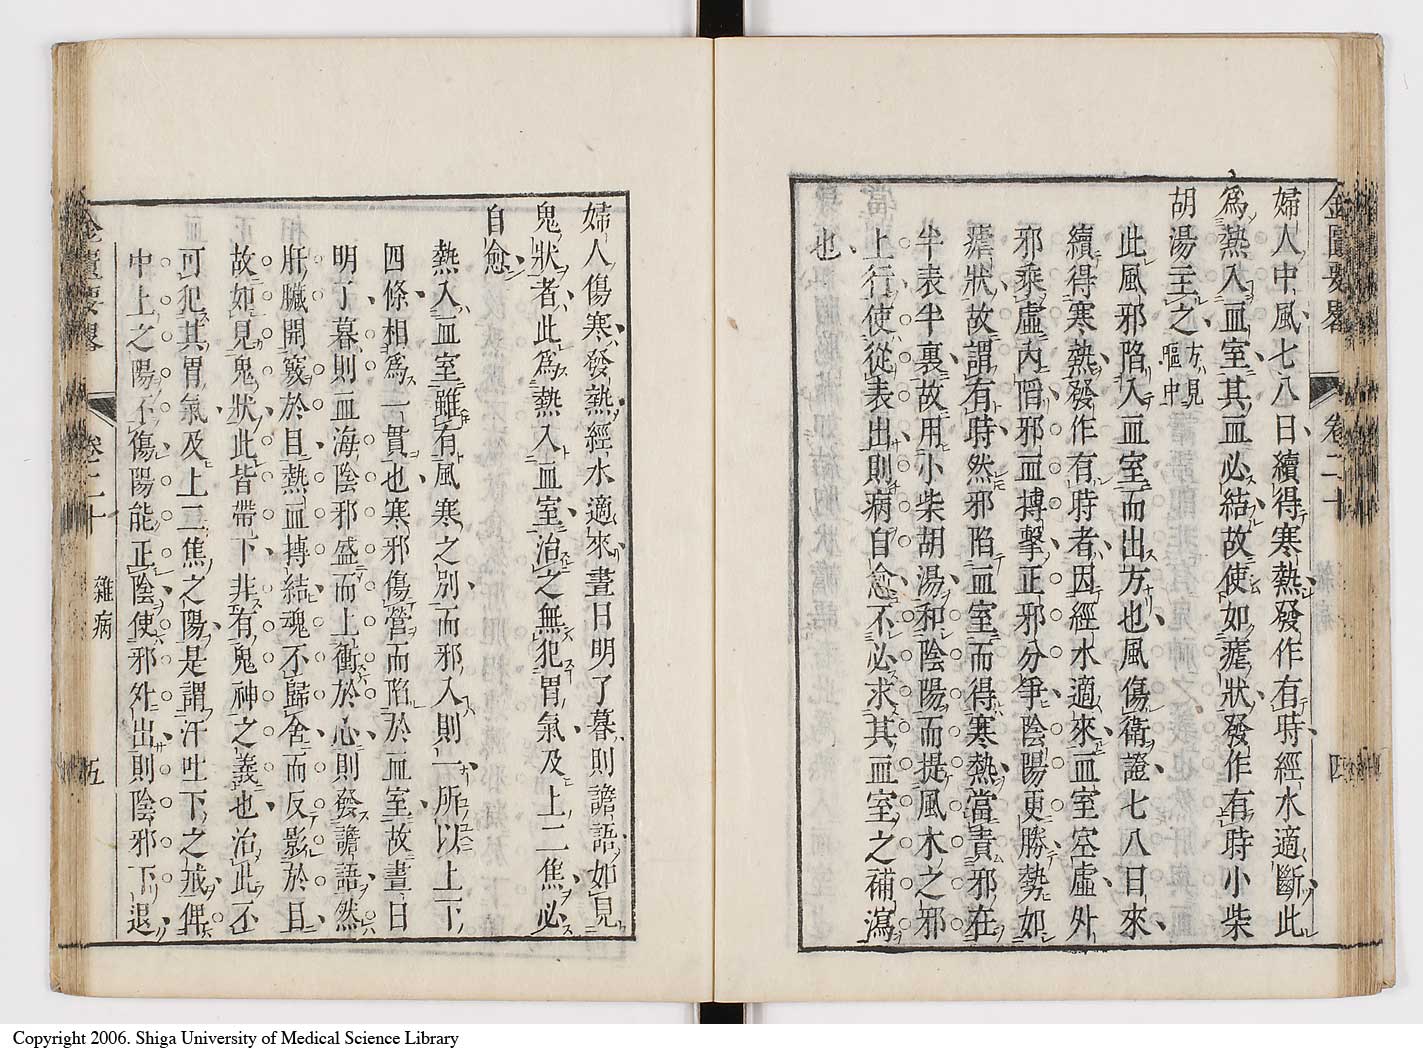 金匱要畧 卷二十 四
婦人中風七八日續得寒熱發作有時經水適斷此
爲熱入血室其血必結故使如瘧狀發作有時小柴
胡湯主之方見嘔中
此風邪陷入血室而出方也風傷衛證七八日來
續得寒熱發作有時者因經水適來血室空虛外
邪乘虛內陷邪血搏擊正邪分爭陰陽更勝勢如
瘧狀故謂有時然邪陷血室而得寒熱當責邪在
半表半裏故用小柴胡湯和陰陽而提風木之邪
上行使從表出則病自愈不必求其血室之補瀉
也
婦人傷寒發熱經水適來晝日明了暮則譫語如見
鬼狀者此爲熱入血室治之無犯胃氣及上二焦必
自愈
熱入血室雖有風寒之別而邪入則一所以上下
四條相爲一貫也寒邪傷營而陷於血室故晝日
明了暮則血海陰邪盛而上衝於心則發譫語然
肝臟開竅於目熱血搏結魂不歸舍而反影於目
故如見鬼狀此皆帶下非有鬼神之義也治此不
可犯其胃氣及上二焦之陽是謂汗吐下之戒俾
中上之陽不傷陽能正陰使邪外出則陰邪下退
金匱要畧 卷二十 雜病 五
Copyright 2006. Shiga University of Medical Science Library